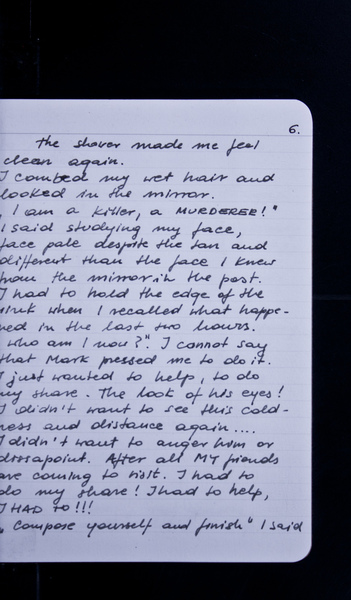 6.
the shower made me feel
clean again.
I combed my wet hair and
looked in the mirror.
„I am a killer, a MURDERER!"
I said studying my face,
face pale despite the tan and
different than the face I knew
from the mirror in the past.
I had to hold the edge of the
sink when I recalled what happe-
ned in the last two hours.
„who am I now?". I cannot say
that Mark pressed me to do it.
I just wanted to help, to do
my share. The look of his eyes!
I didn't want to see this cold-
ness and distance again....
I didn't want to anger him or
dissapoint. After all MY friends
are coming to visit. I had to
do my share! I had to help,
I HAD TO!!!
„Compose yourself and finish" I said